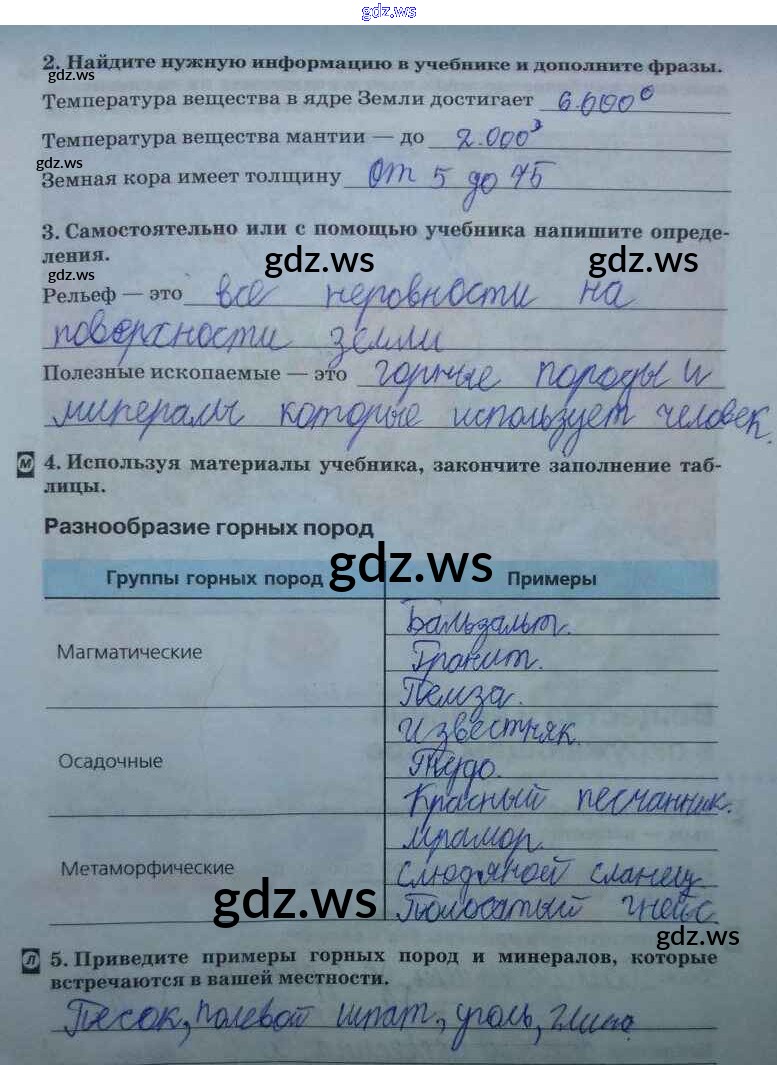 gdz.ws
2. Найдите нужную информацию в учебнике и дополните фразы.
gdz.ws
Температура вещества в ядре Земли достигает 6.000⁰
Температура вещества мантии — до 2.000³
gdz.ws
Земная кора имеет толщину от 5 до 75
3. Самостоятельно или с помощью учебника напишите опреде-
ления.
gdz.ws gdz.ws
gdz.ws
Рельеф — это все неровности на
поверхности земли
Полезные ископаемые — это горные породы и
минералы которые использует человек.
М 4. Используя материалы учебника, закончите заполнение таб-
лицы.
Разнообразие горных пород
gdz.ws
Группы горных пород Примеры
Бальзальт.
Магматические Гранит.
Пемза.
Известняк.
Осадочные
Красный песчанник.
Мрамор.
Метаморфические слюдяной сланец
Полосатый гнейс
gdz.ws
gdz.ws
Л 5. Приведите примеры горных пород и минералов, которые
встречаются в вашей местности.
Песок, полевой шпат, уголь, глина